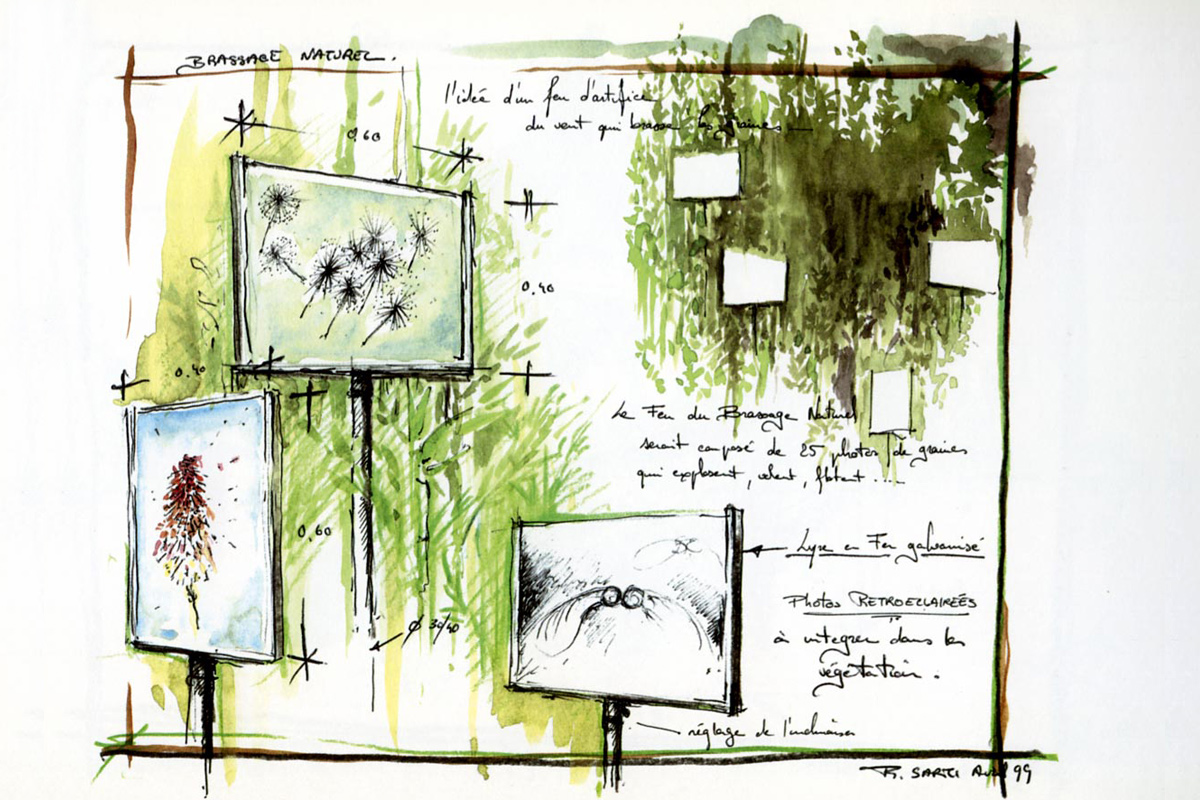 BRASSAGE NATUREL.
l'idée d'un feu d'artifice
du vent qui brasse les graines
0,60
0,40
0,40
0,60
Le Feu du Brassage Naturel
serait composé de 25 photos de graines
qui explosent, volent, flotent ....
Lyre en Fer galvanisé
Photos RETROECLAIRÉES
à integrer dans la
végétation.
Ø 30/40
réglage de l'inclinaison
R. SARTI Avril 99